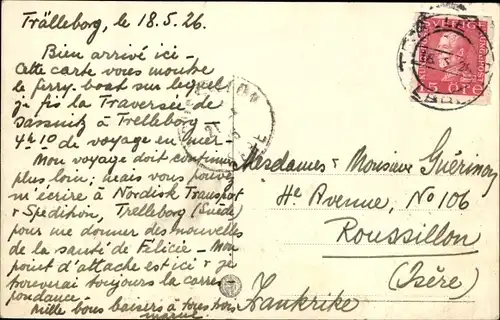 Trälleborg, le 18.5.26.
Bien arrivé ici -
Cette carte vous montre
le ferry-boat sur lequel
j'ai fis la Traversée de
Sassnitz à Trelleborg -
4h10 de voyage en mer -
Mon voyage doit continuer
plus loin; mais vous pouvez
m'écrire à Nordisk Transport
& Spedition, Trelleborg (Suède)
pour me donner des nouvelles
de la santé de Félicie - Mon
point d'attache est ici & je
trouverai toujours la corres
pondance.
Mille bons baisers à tous trois
SVERIGE
15 ÖRE
Mesdames & Monsieur
He Avenue, No 106
Roussillon
(Isère)
Frankrike